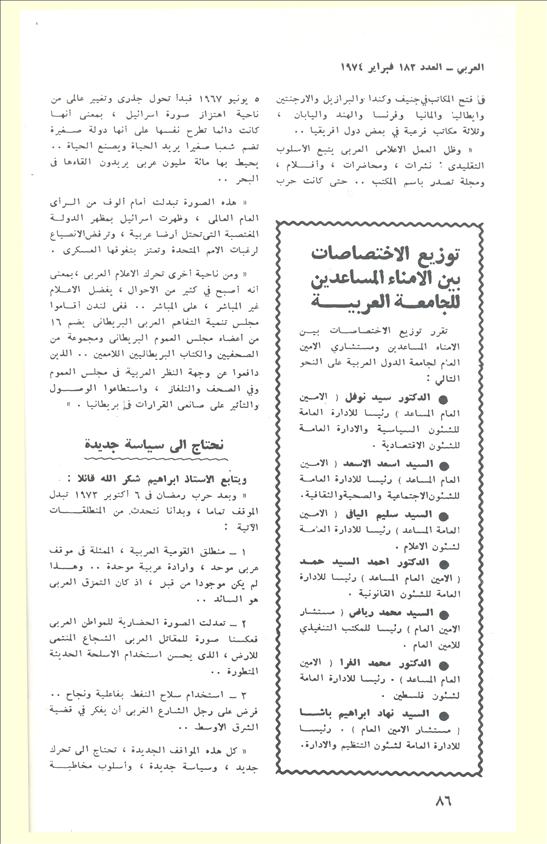 العربي ــ العدد ١٨٣ فبراير ١٩٧٤
في فتح المكاتب في جنيف وكندا والبرازيل والارجنتين
وايطاليا والمانيا وفرنسا والهند واليابان ،
وثلاثة مكاتب فرعية في بعض دول افريقيا ..
« وظل العمل الاعلامى العربى يتبع الأسلوب
التقليدى : نشرات ، ومحاضرات ، وأفلام ،
ومجلة تصدر باسم المكتب .. حتى كانت حرب
توزيع الاختصاصات
بين الامناء المساعدين
للجامعة العربية
تقرر توزيع الاختصاصات بين
الامناء المساعدين ومستشاري الامين
العام لجامعة الدول العربية على النحو
التالي :
● الدكتور سيد نوفل ( الامين
العام المساعد ) رئيسا للادارة العامة
للشئون السياسية والادارة العامة
للشئون الاقتصادية .
● السيد اسعد الاسعد ( الامين
العام المساعد ) رئيسا للادارة العامة
للشئون الاجتماعية والصحية والثقافية.
● السيد سليم اليافى ( الامين
العامة المساعد ) رئيسا للادارة العامة
لشئون الاعلام .
● الدكتور احمد السيد حمد
( الامين العام المساعد ) رئيسا للادارة
العامة للشئون القانونية .
● السيد محمد رياض ( مستشار
الامين العام ) رئيسا للمكتب التنفيذي
للامين العام .
● الدكتور محمد الفرا ( الامين
العام المساعد ) . رئيسا للادارة العامة
لشئون فلسطين .
● السيد نهاد ابراهيم باشا
( مستشار الامين العام ) . رئيسا
للادارة العامة لشئون التنظيم والادارة.
٥ يونيو ١٩٦٧ فبدأ تحول جذرى وتغيير عالمى من
ناحية اهتزاز صورة اسرائيل ، بمعنى أنها
كانت دائما تطرح نفسها على أنها دولة صغيرة
تضم شعبا صغيرا يريد الحياة ويصنع الحياة ..
يحيط بها مائة مليون عربى يريدون القاءها فى
البحر ..
« هذه الصورة تبدلت أمام ألوف من الرأى
العام العالمى ، وظهرت اسرائيل بمظهر الدولة
المغتصبة التى تحتل أرضا عربية ، وترفض الانصياع
لرغبات الامم المتحدة وتعتز بتفوقها العسكرى .
« ومن ناحية أخرى تحرك الاعلام العربى ، بمعنى
أنه أصبح في كثير من الاحوال ، يفضل الاعلام
غير المباشر ، على المباشر .. ففى لندن أقاموا
مجلس تنمية التفاهم العربى البريطانى يضم ١٦
من أعضاء مجلس العموم البريطانى ومجموعة من
الصحفيين والكتاب البريطانيين اللامعين .. الذين
دافعوا عن وجهة النظر العربية فى مجلس العموم
وفي الصحف والتلفاز ، واستطاعوا الوصول
والتأثير على صانعى القرارات في بريطانيا . »
نحتاج الى سياسة جديدة
ويتابع الأستاذ ابراهيم شكر الله قائلا :
« وبعد حرب رمضان فى ٦ أكتوبر ١٩٧٣ تبدل
الموقف تماما ، وبدأنا نتحدث من المنطلقات
الآتية :
١ ــ منطلق القومية العربية ، الممثلة فى موقف
عربى موحد ، وارادة عربية موحدة .. وهذا
لم يكن موجودا من قبل ، اذ كان التمزق العربى
هو السائد ..
٢ ــ تعدلت الصورة الحضارية للمواطن العربى
فعكسنا صورة للمقاتل العربى الشجاع المنتمى
للارض ، الذى يحسن استخدام الاسلحة الحديثة
المتطورة ..
٣ ــ استخدام سلاح النفط بفاعلية ونجاح ..
فرض على رجل الشارع الغربى أن يفكر فى قضية
الشرق الاوسط ..
« كل هذه المواقف الجديدة ، تحتاج الى تحرك
جديد ، وسياسة جديدة ، وأسلوب مخاطبة
٨٦